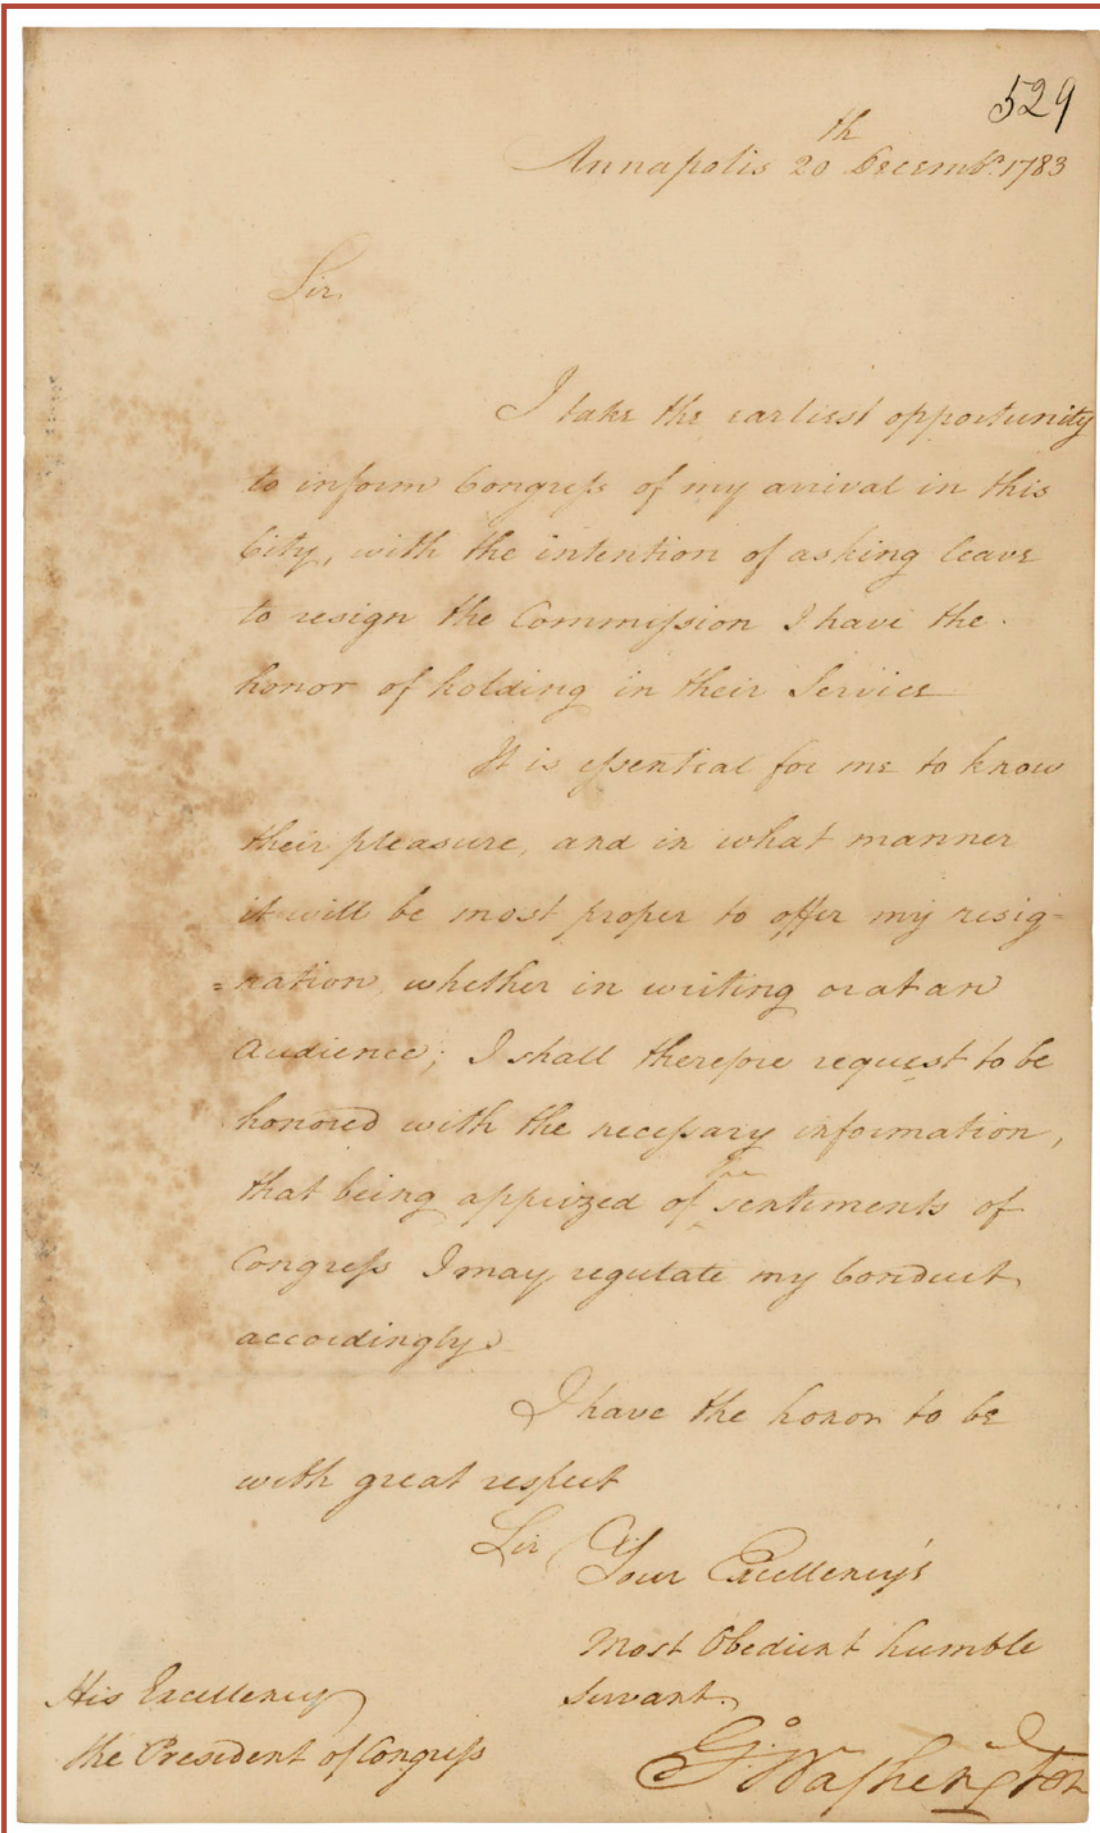 529
Annapolis 20th Decembr. 1783
Sir,
I take the earliest opportunity
to inform Congress of my arrival in this
City, with the intention of asking leave
to resign the Commission I have the
honor of holding in their Service
It is essential for me to know
their pleasure, and in what manner
it will be most proper to offer my resig=
=nation whether in writing or at an
Audience; I shall therefore request to be
honored with the necessary information,
that being apprized of the sentiments of
Congress I may regulate my Conduct
accordingly
I have the honor to be
with great respect
Sir
Your Excellency's
Most Obedient humble
Servant.
Go. Washington
His Excellency
the President of Congress